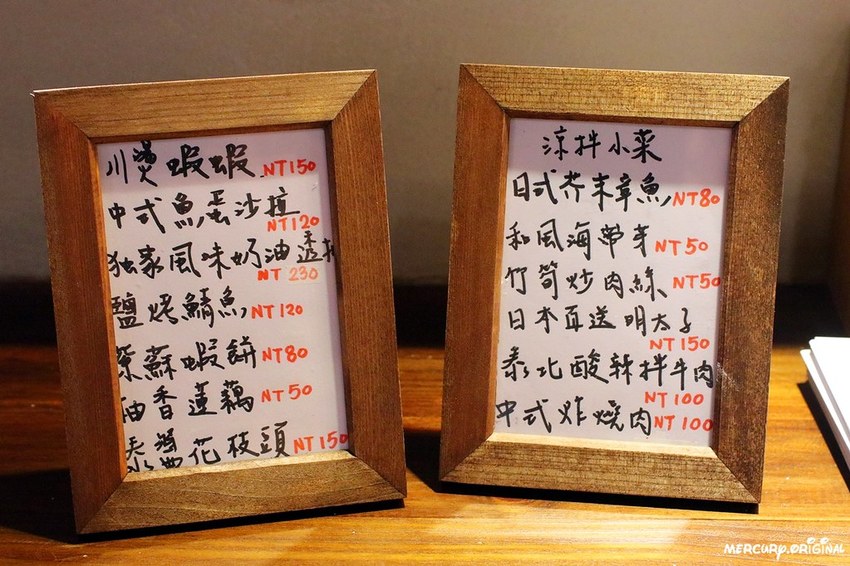 川燙蝦蝦 NT150
中式魚蛋沙拉
NT120
独家風味奶油透抽
NT 230
鹽烤鯖魚 NT120
紫蘇蝦餅 NT80
油香蓮藕 NT50
花枝頭 NT150
涼拌小菜
日式芥末章魚 NT80
和風海帶芽 NT50
竹筍炒肉絲 NT50
日本直送明太子
NT150
泰北酸辣拌牛肉
NT100
中式炸燒肉 NT100
MERCURY.ORIGINAL